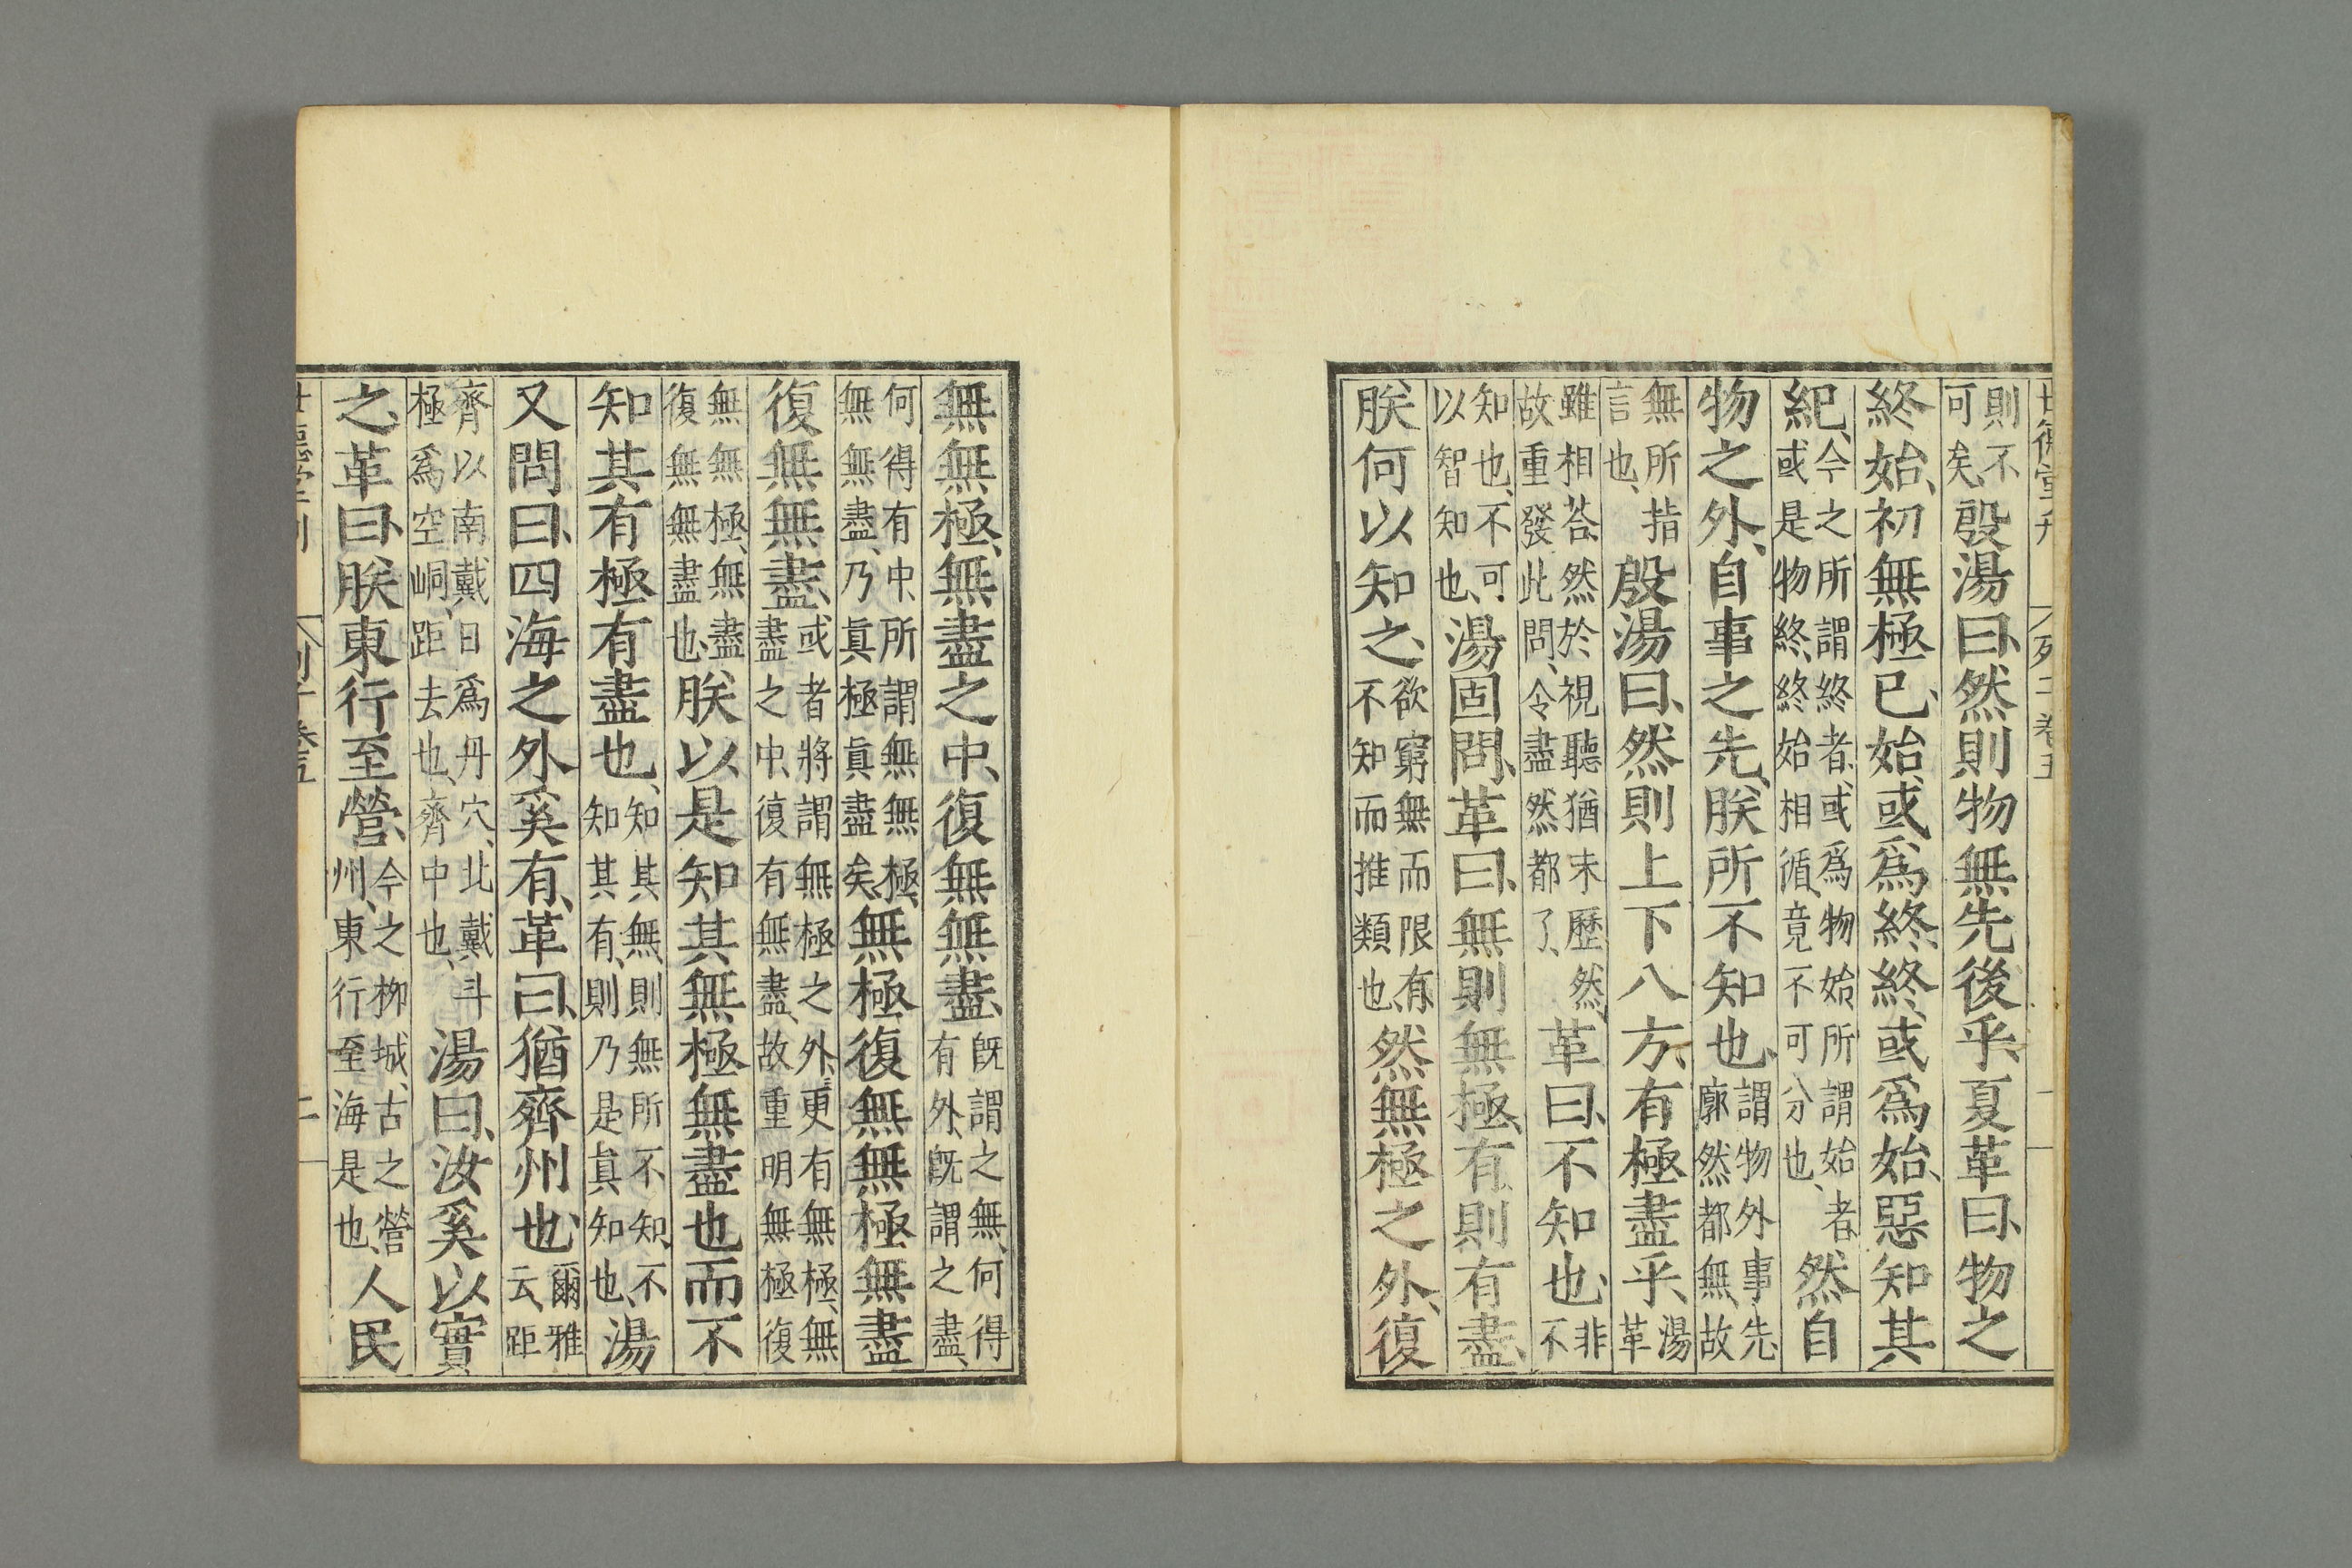 世德堂刊 列子卷五 一
則不可矣、殷湯曰、然則物無先後乎、夏革曰、物之
終始、初無極已、始或爲終、終或爲始、惡知其
紀、今之所謂終者、或爲物始、所謂始者、或是物終、終始相循、竟不可分也、然自
物之外、自事之先、朕所不知也、謂物外事先、廓然都無、故
無所指言也、殷湯曰、然則上下八方、有極盡乎、湯革
雖相荅、然於視聽猶未歷然、故重發此問、令盡然都了、革曰、不知也、非不
知也、不可以智知也、湯固問、革曰、無則無極、有則有盡、
朕何以知之、欲窮無而限有、不知而推類也、然無極之外、復
無無極、無盡之中、復無無盡、旣謂之無、何得有外、旣謂之盡、
何得有中、所謂無無極、無無盡、乃眞極眞盡矣、無極復無無極、無盡
復無無盡、或者將謂無極之外、更有無極、無盡之中、復有無盡、故重明無極復
無無極、無盡復無無盡也、朕以是知其無極無盡也、而不
知其有極有盡也、知其無、則無所不知、不知其有、則乃是眞知也、湯
又問曰、四海之外奚有、革曰、猶齊州也、爾雅云、距
齊以南戴日、爲丹穴、北戴斗極爲空峒、距去也、齊中也、湯曰、汝奚以實
之、革曰、朕東行至營、今之柳城、古之營州、東行至海是也、人民
世德堂刊 列子卷五 二